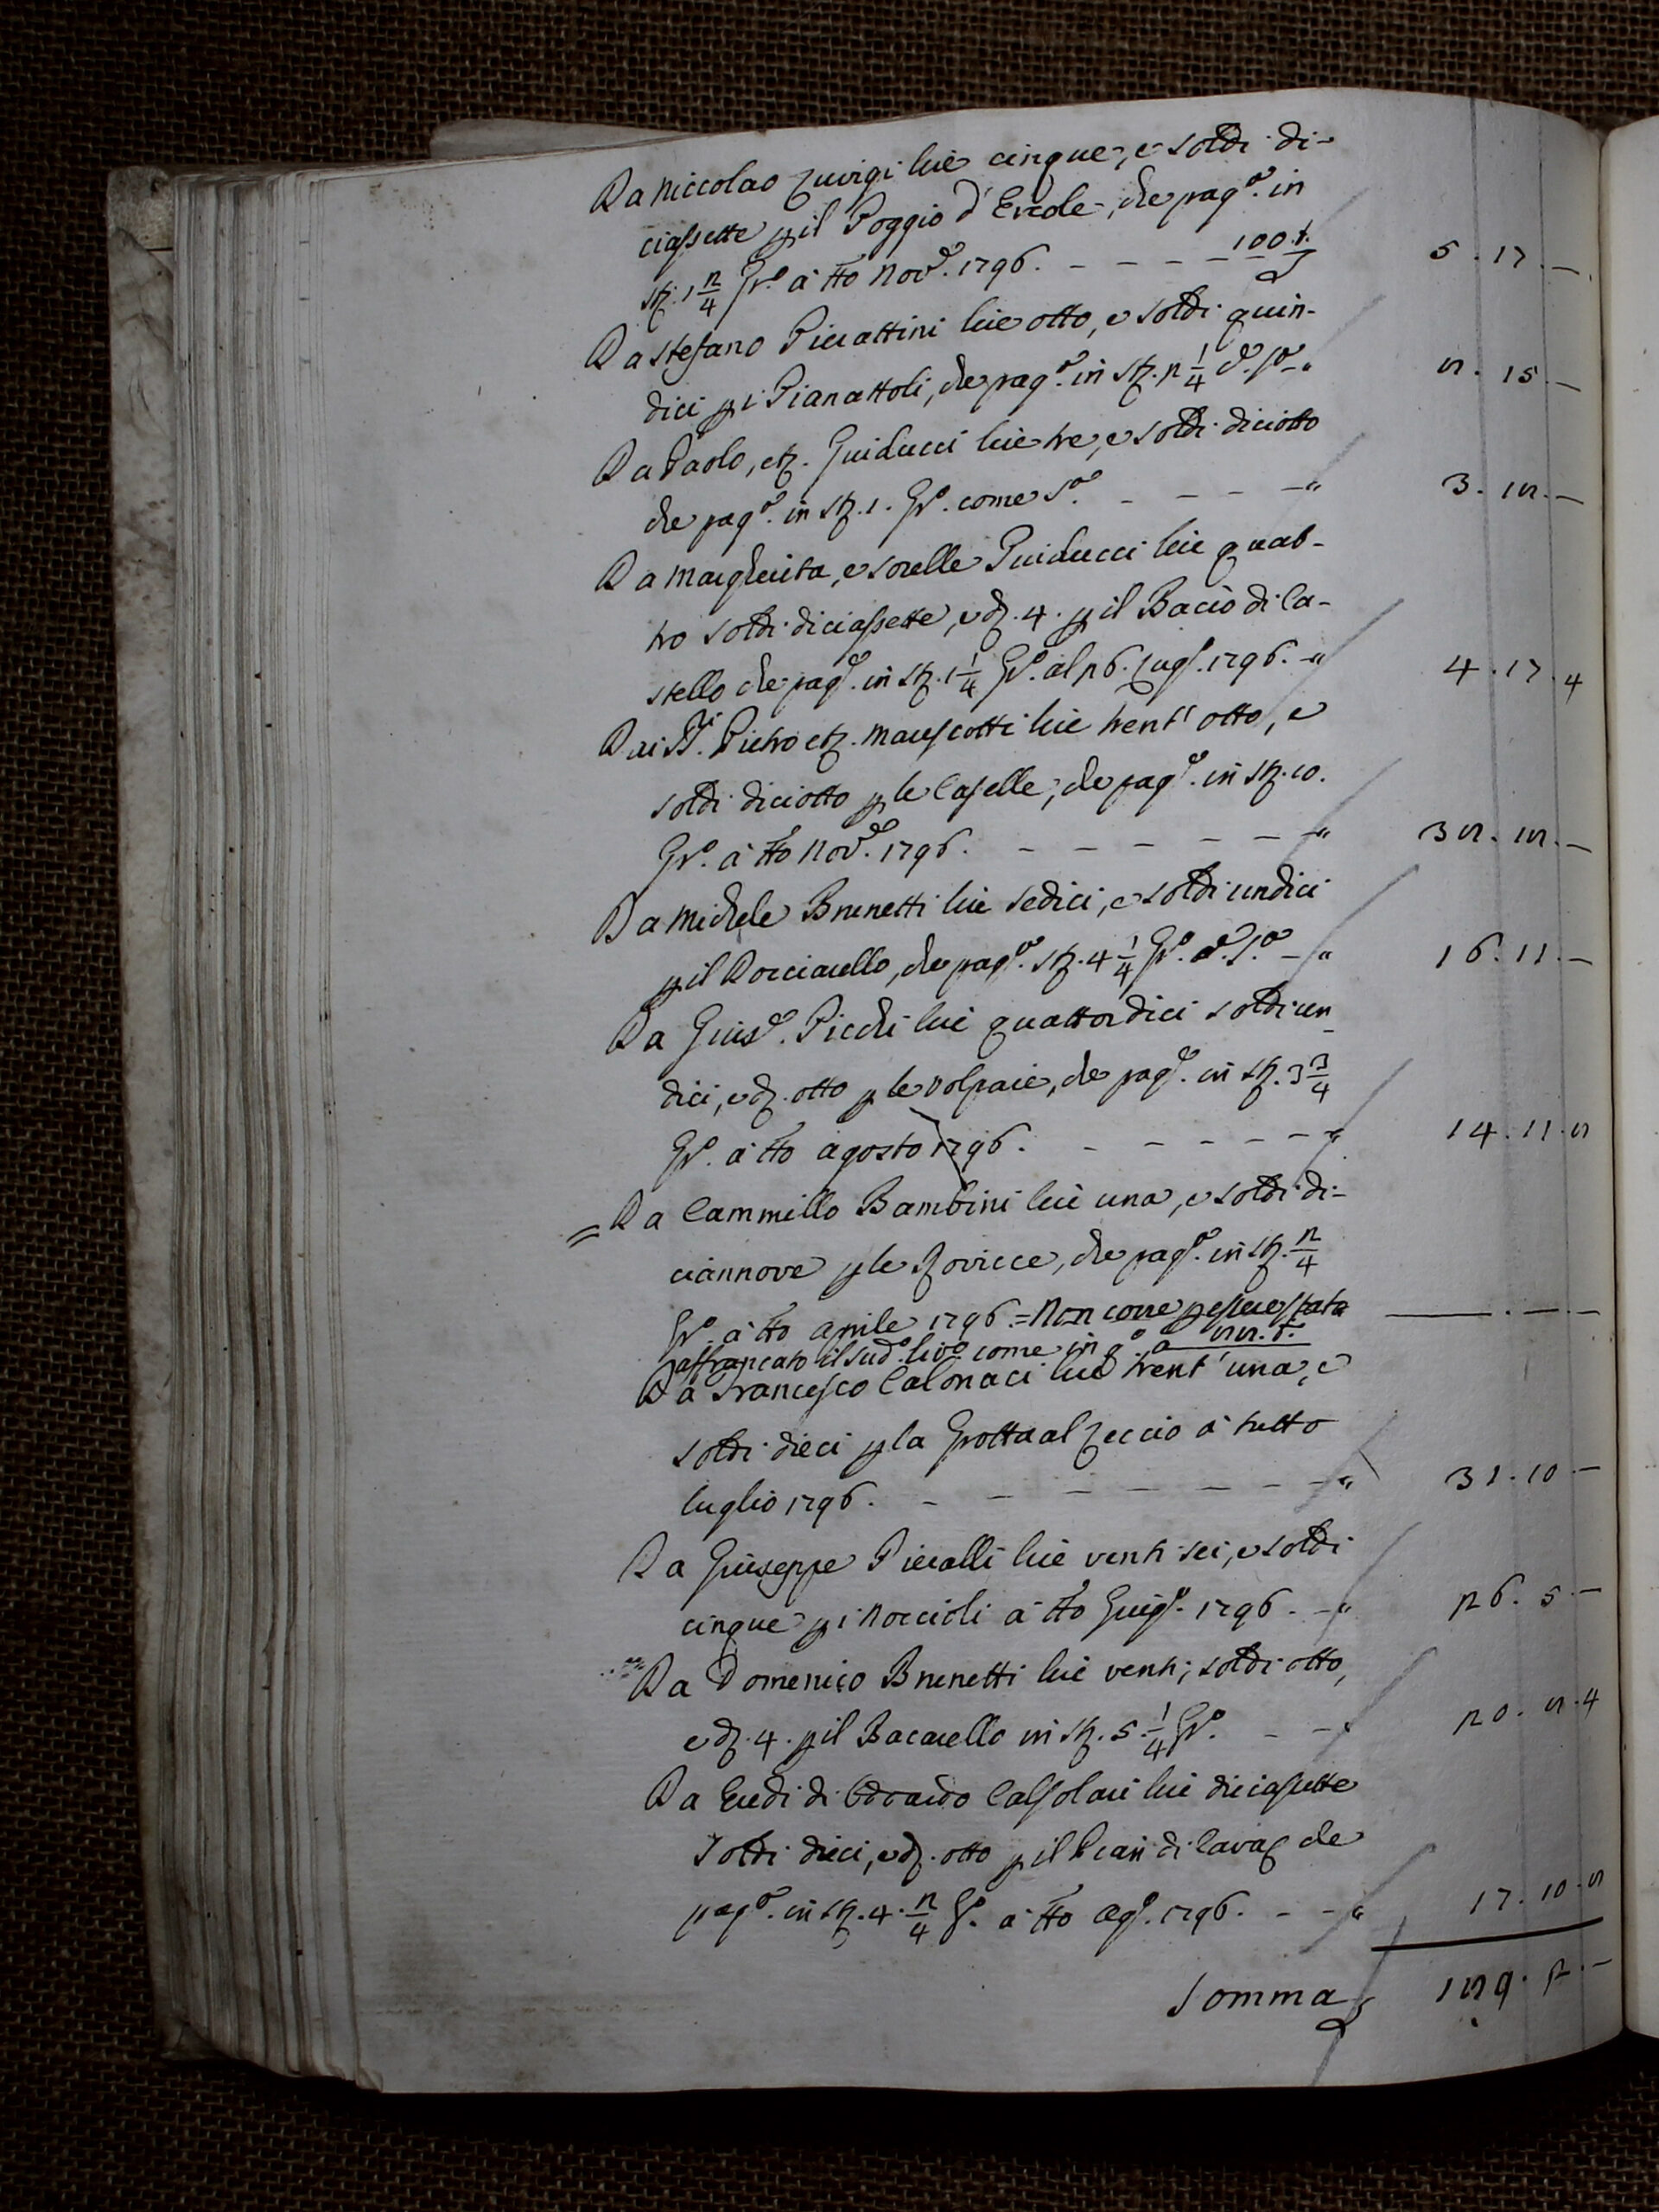 Da Niccolao Zuirgi lire cinque, e soldi di-
ciassette p il Poggio d'Ercole, che pag.º in
stz. 1 2/4 Gr.º a tto Nov.e 1796. - - - - 100.t. 5.17.-
Da Stefano Pierattini lire otto, e soldi quin-
dici p i Pianattoli, che pag.º in stz. 2 1/4 d.º s.ª - " 8.15.-
Da Paolo, etz. Guiducci lire tre, e soldi diciotto
che pag.º in stz. 1. Gr.º come s.ª - - - - " 3.18.-
Da Margherita, e sorelle Guiducci lire quat-
tro soldi diciassette, e dz. 4. p il Bacìo di Ca-
stello che pag.º in stz. 1 1/4 Gr.º al 26. Lug.º 1796. - " 4.17.4
Dai SS.i Pietro etz. Marescotti lire trent'otto, e
soldi diciotto p le Caselle, che pag.º in stz. 10.
Gr.º a tto Nov.e 1796. - - - - - - " 38.18.-
Da Michele Brunetti lire sedici, e soldi undici
p il Docciarello, che pag.º stz. 4 1/4 Gr.º d.º s.ª - " 16.11.-
Da Gius.e Picchi lire quattordici soldi un-
dici, e dz. otto p le Volpaie, che pag.º in stz. 3 3/4
Gr.º a tto agosto 1796. - - - - - " 14.11.8
= Da Cammillo Bambini lire una, e soldi di-
ciannove p le che pag.º in stz. 2/4
Gr.º a tto aprile 1796. = Non corre p essere stato - . - . -
affrancato il sud.º liv.º come in q.º a 88.t.
Da Francesco Calonaci lire trent'una, e
soldi dieci p la Grotta al Leccio a tutto
luglio 1796. - - - - - - - " 31.10.-
Da Giuseppe Pieralli lire venti sei, e soldi
cinque p i Noccioli a tto Giug.º 1796. - " 26.5.-
Da Domenico Brunetti lire venti, soldi otto,
e dz. 4. p il Bacarello in stz. 5. 1/4 Gr.º - - " 20.8.4
Da Eredi di Edoardo Calsolari lire diciasette
soldi dieci, e dz. otto p il Pian di che
pag.º in stz. 4. 2/4 G.º a tto Ag.º 1796. - - " 17.10.8
Somma 189.2.-